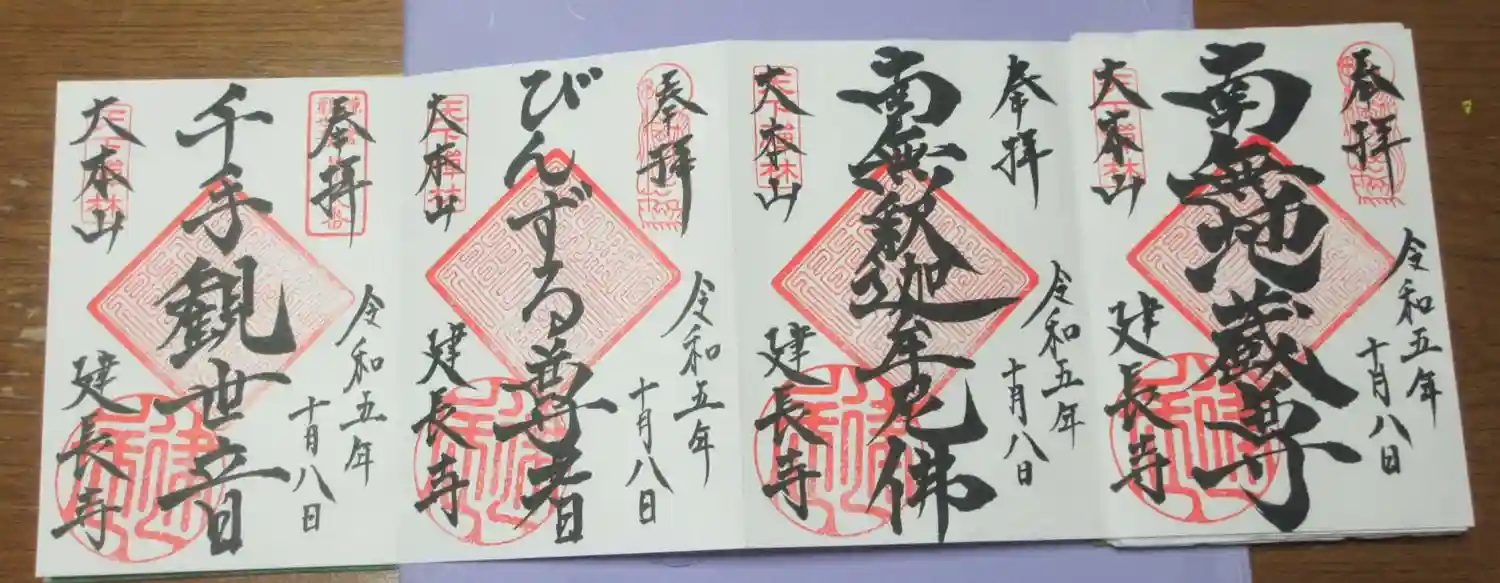 奉拝
令和五年
十月八日
南無地蔵尊
大本山
建長寺
奉拝
令和五年
十月八日
南無釈迦牟尼佛
大本山
天下禅林
建長寺
奉拝
令和五年
十月八日
びんずる尊者
大本山
天下禅林
建長寺
奉拝
令和五年
十月八日
千手観世音
大本山
天下禅林
建長寺